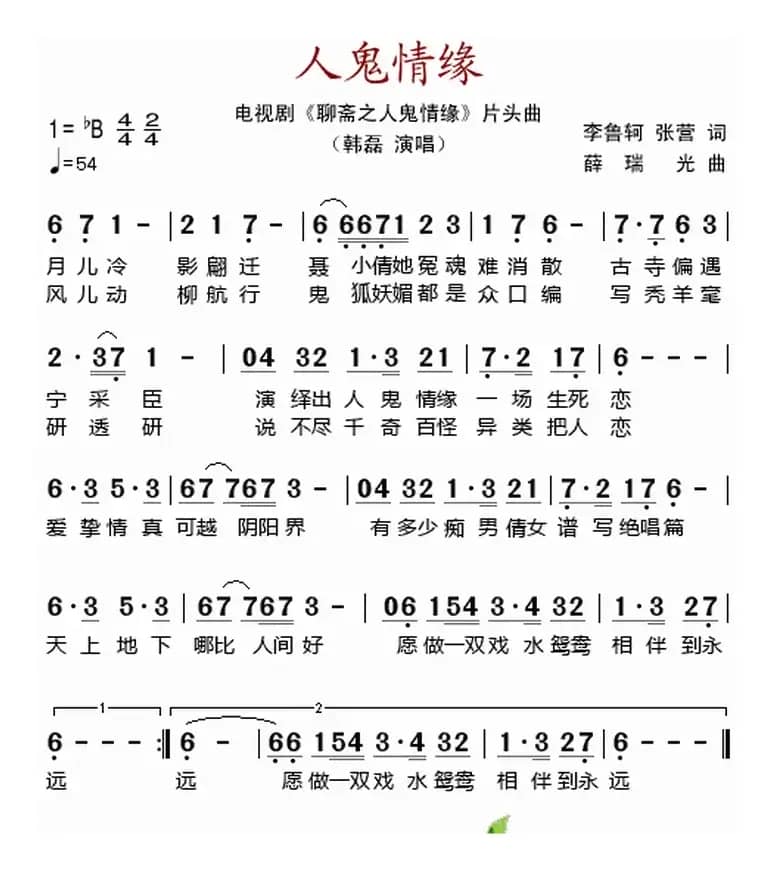 人鬼情缘
电视剧《聊斋之人鬼情缘》片头曲
1=♭B 4/4 2/4
（韩磊 演唱）
李鲁轲 张营 词
♩=54
薛瑞光 曲
6 7 1 - | 2 1 7 - | 6 6671 2 3 | 1 7 6 - | 7·7 6 3 |
月儿冷 影翩迁 聂 小倩她冤魂难消散 古寺偏遇
风儿动 柳航行 鬼 狐妖媚都是众口编 写秃羊毫
2·37 1 - | 04 32 1·3 21 | 7·2 17 6 - - - |
宁采臣 演绎出人鬼情缘一场生死恋
研透研 说不尽千奇百怪异类把人恋
6·3 5·3 | 67 767 3 - | 04 32 1·3 21 | 7·2 17 6 - |
爱挚情真可越 阴阳界 有多少痴男倩女谱写绝唱篇
6·3 5·3 | 67 767 3 - | 06 154 3·4 32 | 1·3 27 |
天上地下 哪比 人间好 愿做一双戏水鸳鸯 相伴到永
1 2
6 - - - :| 6 - | 66 154 3·4 32 | 1·3 27 | 6 - - - ||
远 远 愿做一双戏水鸳鸯 相伴到永远